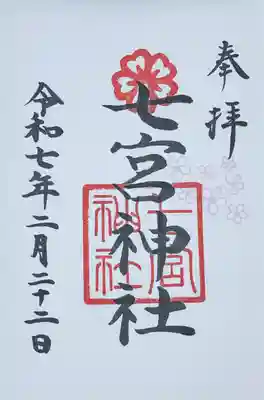 奉拝
七宮神社
宮
神社
令和七年二月二十二日